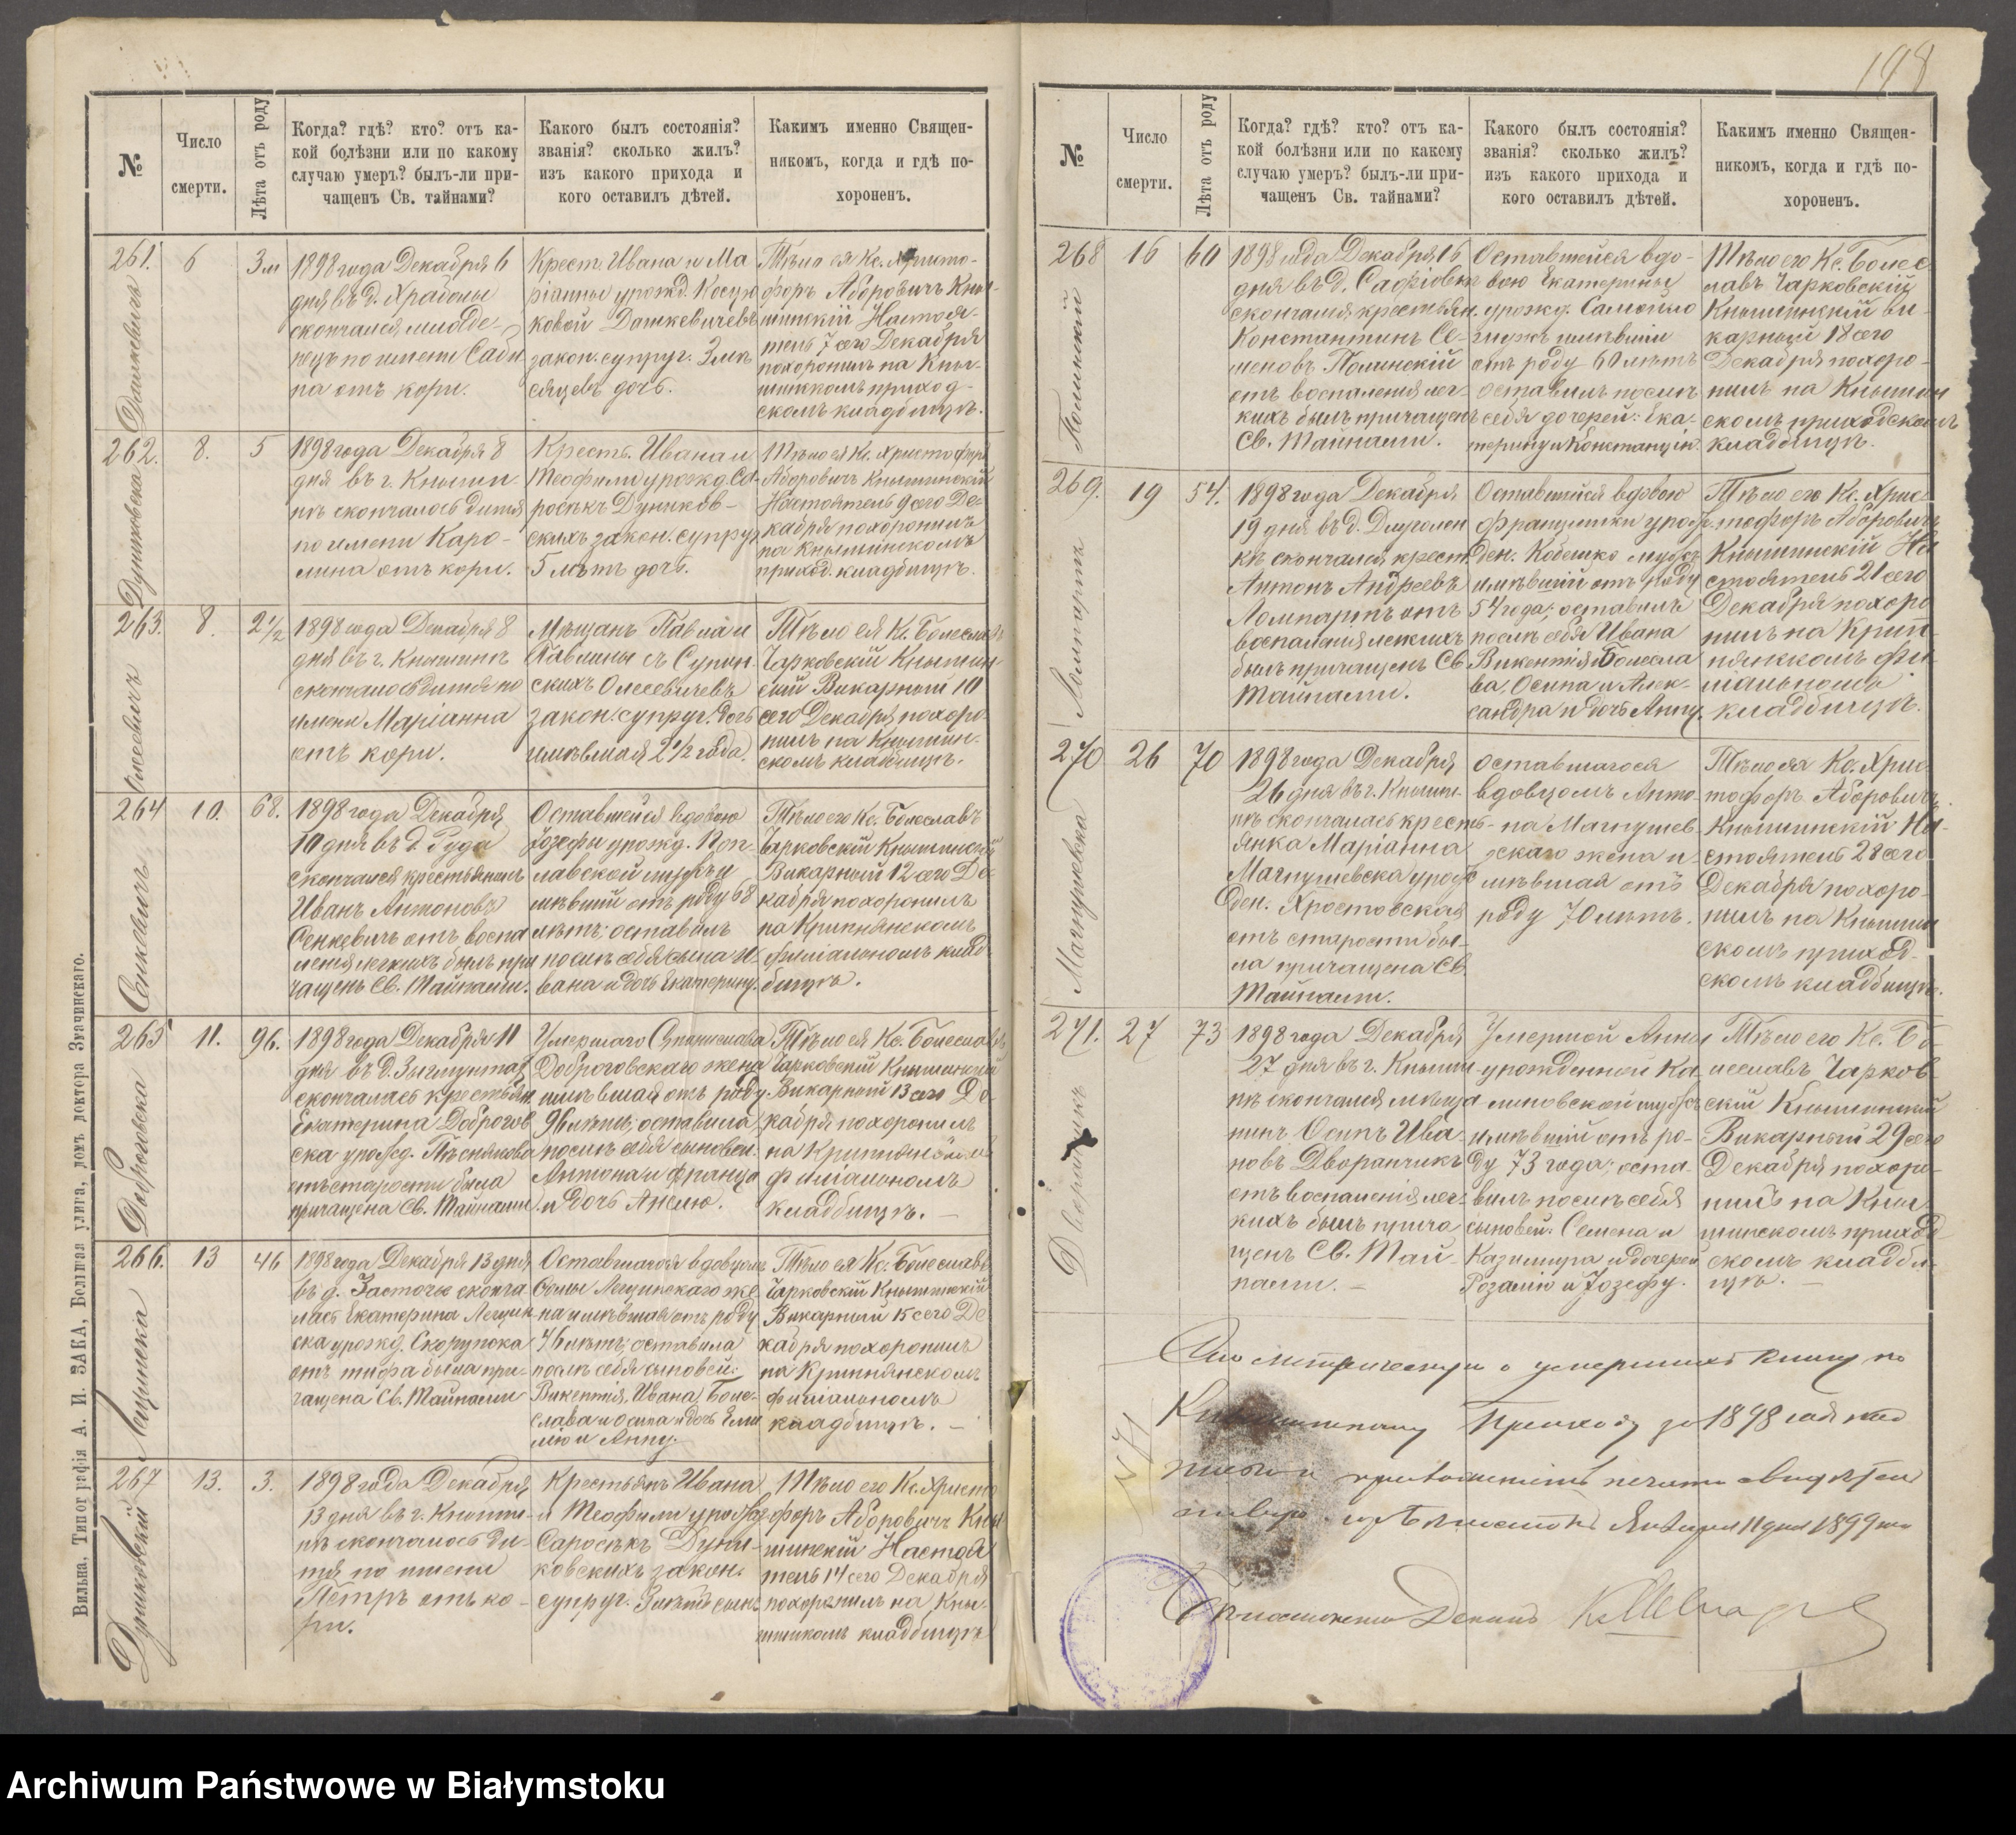 198
№
Число
смерти.
Лѣта отъ роду
Когда? гдѣ? кто? отъ ка-
кой болѣзни или по какому
случаю умеръ? былъ-ли при-
чащенъ Св. тайнами?
Какого былъ состоянія?
званія? сколько жилъ?
изъ какого прихода и
кого оставилъ дѣтей.
Какимъ именно Священ-
никомъ, когда и гдѣ по-
хороненъ.
261.
6
3 м
1898 года Декабря 6
дня въ д. Храболы
скончался младе-
нецъ по имени Саби
на отъ кори.
Крест. Ивана и Ма
ріанны урожд. Косцю
ковой Дашкевичевъ
закон. супруг. 3 мѣ
сяцевъ дочь.
Тѣло ея Кс. Христо-
форъ Аборовичъ Кны-
шинскій Настоя-
тель 7 сего Декабря
похоронилъ на Кны-
шинскомъ приход-
скомъ кладбищѣ.
262.
Дуниковска
8.
5
1898 года Декабря 8
дня въ г. Кныши-
нѣ скончалось дитя
по имени Каро-
лина отъ кори.
Крестъ. Ивана и
Теофили урожд. Са-
росѣкъ Дуников-
скихъ закон. супруг.
5 лѣтъ дочь.
Тѣло ея Кс. Христофоръ
Аборовичъ Кнышинскій
Настоятель 9 сего Де-
кабря похоронилъ
на Кнышинскомъ
приход. кладбищѣ.
263.
Олесевичъ
8.
2 1/2
1898 года Декабря 8
дня въ г. Кнышинѣ
скончалось дитя по
имени Маріанна
отъ кори.
Мѣщанъ Павла и
Павлины съ
скихъ Олесевичевъ
закон. супруг. дочь
имѣвшая 2 1/2 года.
Тѣло ея Кс. Болеславъ
Чарковскій Кнышин-
скій Викарный 10
сего Декабря похоро-
нилъ на Кнышин-
скомъ кладбищѣ.
264
Сенкевичъ
10.
68.
1898 года Декабря
10 дня въ д. Руда
скончался крестьянинъ
Иванъ Антоновъ
Сенкевичъ отъ воспа
ленія легкихъ былъ при
чащенъ Св. Тайнами.
Оставшейся вдовою
Іозефы урожд. Поп-
лавской мужъ и
мѣвшій отъ роду 68
лѣтъ; оставилъ
послѣ себя сына И-
вана и дочь Екатерину.
Тѣло его Кс. Болеславъ
Чарковскій Кнышинскій
Викарный 12 сего Де-
кабря похоронилъ
на Крипнянскомъ
филіальномъ клад-
бищѣ.
265
Доброговска
11.
96.
1898 года Декабря 11
дня въ д. Зыгмунты
скончалась крестьян.
Екатерина Доброгов
ска урожд.
отъ старости была
причащена Св. Тайнами.
Умершаго Станислава
Доброговскаго жена
имѣвшая отъ роду
96 лѣтъ; оставила
послѣ себя сыновей:
Антона и Франца
и дочь Анелю.
Тѣло ея Кс. Болеславъ
Чарковскій Кнышинскій
Викарный 13 сего Де-
кабря похоронилъ
на Крипнянскомъ
филіальномъ
кладбищѣ. —
266.
Лещинска
13
46
1898 года Декабря 13 дня
въ д. Засточье сконча
лась Екатерина Лещин
ска урожд. Скорупска
отъ тифа была при-
чащена Св. Тайнами
Оставшагося вдовцомъ
Лещинскаго же
на имѣвшая отъ роду
46 лѣтъ; оставила
послѣ себя сыновей:
Викентія, Ивана, Боле-
слава и Осипа и дочь Еми
лію и Анну.
Тѣло ея Кс. Болеславъ
Чарковскій Кнышинскій
Викарный 15 сего Де
кабря похоронилъ
на Крипнянскомъ
филіальномъ
кладбищѣ. —
267
Дуниковскій
13.
3.
1898 года Декабря
13 дня въ г. Кныши-
нѣ скончалось ди-
тя по имени
Петръ отъ ко-
ри.
Крестьянъ Ивана
и Теофили урожд
Саросѣкъ Дуни-
ковскихъ закон.
супруг. 3 лѣтъ сынъ
Тѣло его Кс. Христо
форъ Аборовичъ Кны
шинскій Настоя
тель 14 сего Декабря
похоронилъ на Кны-
шинскомъ кладбищѣ
Вильна, Типографія А. И. ЗАКА, Большая улица, домъ доктора Значинскаго.
№
Число
смерти.
Лѣта отъ роду
Когда? гдѣ? кто? отъ ка-
кой болѣзни или по какому
случаю умеръ? былъ-ли при-
чащенъ Св. тайнами?
Какого былъ состоянія?
званія? сколько жилъ?
изъ какого прихода и
кого оставилъ дѣтей.
Какимъ именно Священ-
никомъ, когда и гдѣ по-
хороненъ.
268
16
60
1898 года Декабря 16
дня въ д. Софіовкѣ
скончался крестьян.
Константинъ Се-
меновъ
отъ воспаленія лег-
кихъ былъ причащенъ
Св. Тайнами.
Оставшейся вдо-
вою Екатерины
урожд. Самойло
мужъ имѣвшій
отъ роду 60 лѣтъ
оставилъ послѣ
себя дочерей: Ека-
терину и Констанцію.
Тѣло его Кс. Болес
лавъ Чарковскій
Кнышинскій Ви-
карный 18 сего
Декабря похоро-
нилъ на Кнышин
скомъ приходскомъ
кладбищѣ.
269.
Ломпартъ
19
54.
1898 года Декабря
19 дня въ д. Длуголен
кѣ скончался крест.
Антонъ Андреевъ
Ломпартъ отъ
воспаленія легкихъ
былъ причащенъ Св.
Тайнами.
Оставшейся вдовою
Францишки урож-
ден. Кобешко мужъ
имѣвшій отъ роду
54 года; оставилъ
послѣ себя Ивана
Викентія Болесла
ва, Осипа и Алек-
сандра и дочь Анну.
Тѣло его Кс. Хрис
тофоръ Аборовичъ
Кнышинскій На
стоятель 21 сего
Декабря похоро
нилъ на Крип-
нянскомъ фи-
ліальномъ
кладбищѣ.
270
Магнушевска
26
70
1898 года Декабря
26 дня въ г. Кныши-
нѣ скончалась кресть-
янка Маріанна
Магнушевска урож
ден. Хростовская
отъ старости бы-
ла причащена Св.
Тайнами.
Оставшагося
вдовцомъ Анто-
на Магнушев
скаго жена и
мѣвшая отъ
роду 70 лѣтъ.
Тѣло ея Кс. Хрис-
тофоръ Аборовичъ
Кнышинскій На-
стоятель 28 сего
Декабря похоро-
нилъ на Кнышин
скомъ приход-
скомъ кладбищѣ.
271.
Дворанчикъ
27
73
1898 года Декабря
27 дня въ г. Кныши-
нѣ скончался мѣща
нинъ Осипъ Ива-
новъ Дворанчикъ
отъ воспаленія лег-
кихъ былъ прича
щенъ Св. Тай-
нами. —
Умершой Анны
урожденной Ка
линовской мужъ
имѣвшій отъ ро-
ду 73 года; оста-
вилъ послѣ себя
сыновей: Семена и
Казимира и дочерей
Розалію и Іозефу.
Тѣло его Кс. Бо-
леславъ Чарков-
скій Кнышинскій
Викарный 29 сего
Декабря похоро-
нилъ на Кны-
шинскомъ приход
скомъ кладби-
щѣ. —
Сію метрическую о умершихъ книгу по
Кнышинскому Приходу за 1898 годъ
приложеніемъ печати
Января 11 дня 1899 года
Деканъ
Archiwum Państwowe w Białymstoku